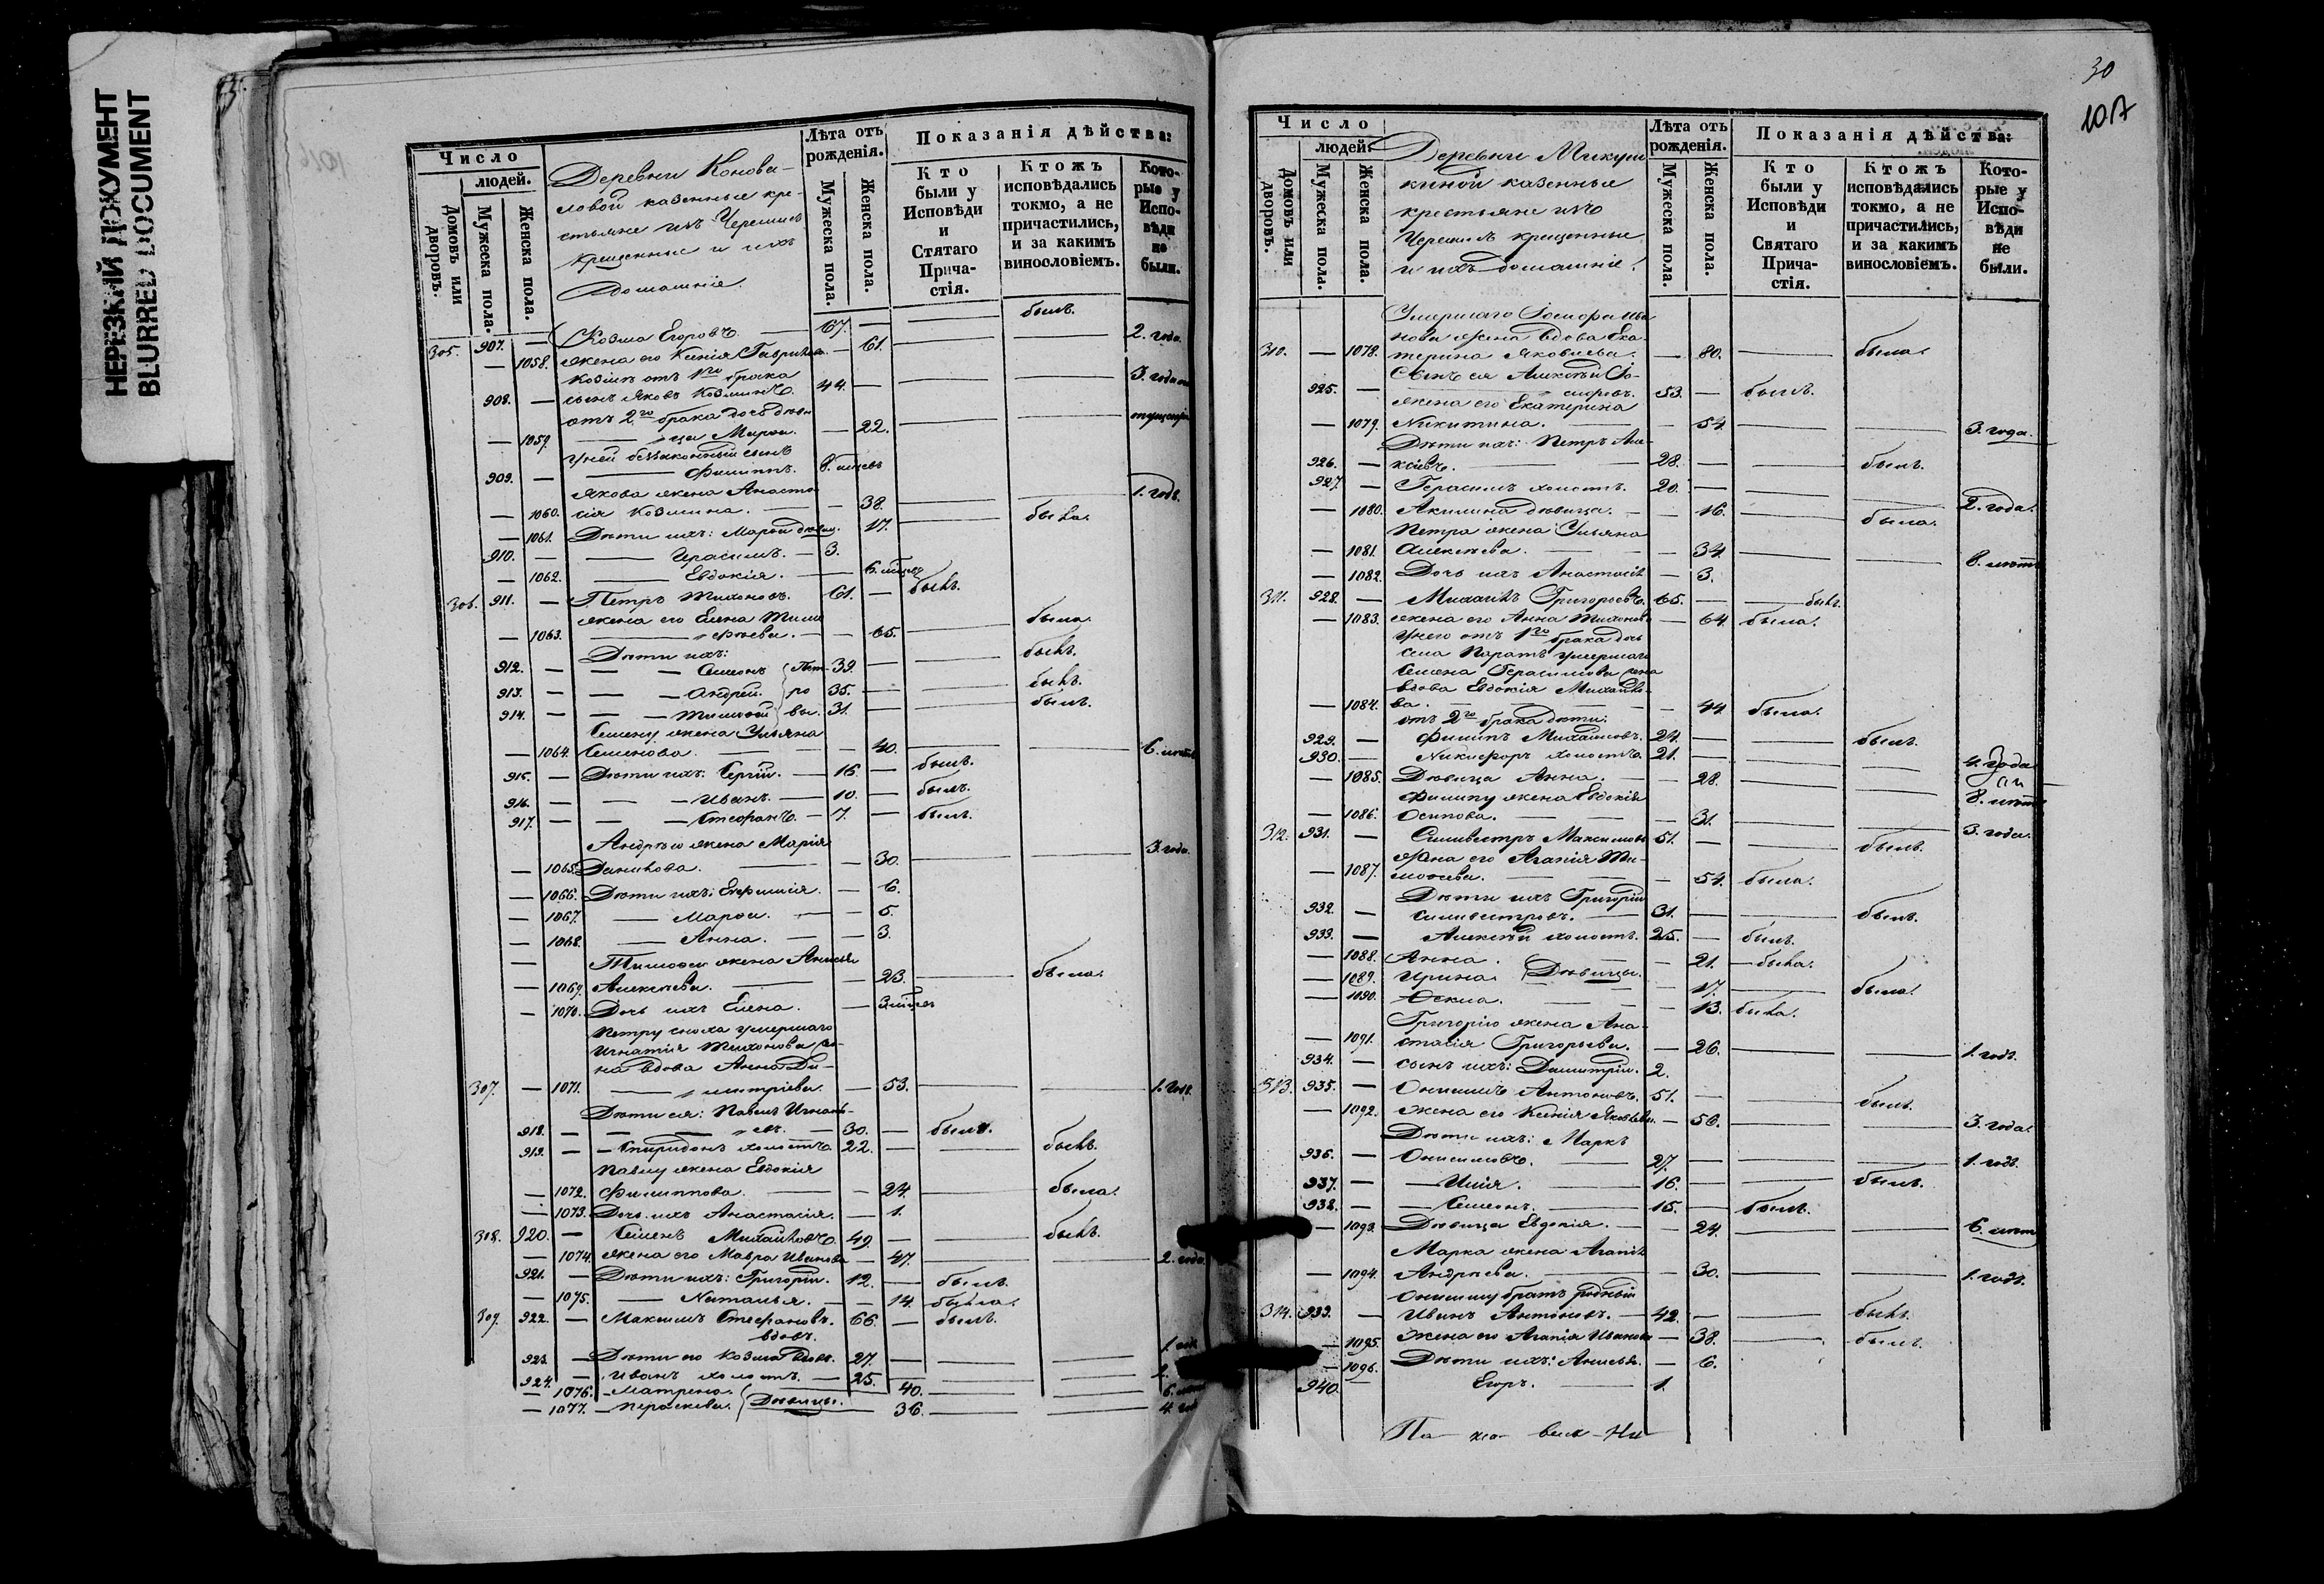 НЕРЕЗКИЙ ДОКУМЕНТ
BLURRED DOCUMENT
Число
людей.
Домовъ или дворовъ.
Мужеска пола.
Женска пола.
Деревни Конова-
ловой казенные кре-
стьяне изъ Черемисъ
крещенные и ихъ
домашніе.
Лѣта отъ рожденія.
Мужеска пола.
Женска пола.
Показанія дѣйства:
Кто были у Исповѣди и Стятаго Прича-стія.
Ктожъ исповѣдались токмо, а не причастились, и за какимъ винословіемъ.
Кото-рые у Испо-вѣди не были.
305. 907. — Козма Егоровъ. — 67. — — былъ.
— 1058. жена его Ксенія Гаврилова. — 61. — — 2. года.
Козмѣ отъ 1го брака
908. — сынъ Яковъ Козминъ. 44. — — — 3. года
отъ 2го брака дочь дѣви
— 1059. — ца Марѳа. — 22. — —
у ней беззаконный сынъ
909. — — Филиппъ. 8. мѣсевъ
Якова жена Анаста
— 1060. сія Козмина. — — 38. — — 1. годъ.
— 1061. Дѣти ихъ: Марѳа дѣвиц. 17. — была.
910. — — Герасимъ. — 3.
— 1062. — Евдокія. — 6. мѣсец
306. 911. — Петръ Тихоновъ. 61. — былъ.
жена его Елена Тимо
— 1063. — ѳеева. — — 65. — была.
Дѣти ихъ:
912. — — — Симеонъ Пет- 39. — — былъ.
913. — — — Андрей. ро 35. — — былъ.
914. — — — Тимоѳей вы. 31. — — былъ.
Семену жена Ульяна
— 1064. Семенова. — — 40. — — 6. лѣтъ
915. — Дѣти ихъ: Сергій. — 16. — былъ.
916. — — — Иванъ. — 10. — былъ.
917. — — — Стефанъ. — 7. — былъ.
Андрѣю жена Марія
— 1065. Данилова. — — 30. — — 3. года.
— 1066. Дѣти ихъ: Евфимія. — 6.
— 1067. — Марѳа. — — 5.
— 1068. — Анна. — — 3.
— Тимоѳею жена Анисья
— 1069. Алексѣева. — — 23. — была.
— 1070. Дочь ихъ Елена. — 3 мѣсев
Петру сноха умершаго
Игнатія Тихонова же-
на вдова Анна Ди-
307. — 1071. — митріева. — 53. — — 1. годъ.
Дѣти ея: Павелъ Игнать-
918. — — — евъ. — 30. — былъ.
919. — — Спиридонъ холостъ. 22. — — былъ.
Павлу жена Евдокія
— 1072. Филиппова. — — 24. — была.
— 1073. Дочь ихъ Анастасія. — 1.
308. 920. — Семенъ Михайловъ. 49. — — былъ.
— 1074. жена его Мавра Иванова — 47. — — 2. года.
921. — Дѣти ихъ: Григорій. 12. — былъ.
— 1075. — Наталья. — — 14. была.
309. 922. — Максимъ Стефановъ. 66. — былъ.
вдовъ.
923. — Дѣти его Козма вдовъ. 27. — — — 1. год
924. — Иванъ холостъ. — 25. — — —
— 1076. — Матрена. 40. — — 6.
— 1077. — Параскева. Дѣвицы. 36. — — 4. год
30
1017
Число
людей.
Домовъ или дворовъ.
Мужеска пола.
Женска пола.
Деревни Микуш
киной казенные
крестьяне изъ
Черемисъ крещенные
и ихъ домашніе.
Лѣта отъ рожденія.
Мужеска пола.
Женска пола.
Показанія дѣйства:
Кто были у Исповѣди и Святаго Прича-стія.
Ктожъ исповѣдались токмо, а не причастились, и за какимъ винословіемъ.
Кото-рые у Испо-вѣди не были.
Умершаго
нова жена вдова Ека-
310. — 1078. терина Яковлева. — 80. — была.
Сынъ ея Алексѣй
925. — 53. — былъ.
жена его Екатерина
— 1079. Никитина. — — 54. — — 3. года.
Дѣти ихъ: Петръ Але-
926. — ксѣевъ. — — 28. — — былъ.
927. — Герасимъ холостъ. 20. — — — 2. года.
— 1080. Акилина дѣвица. — — 16. — была.
Петра жена Ульяна
— 1081. Алексѣева. — — 34. — — 8. лѣтъ
— 1082. Дочь ихъ Анастасія — 3.
311. 928. — Михаилъ Григорьевъ. 65. — — былъ.
— 1083. жена его Анна Тихонова — 64. была.
у него отъ 1го брака дочь
села Паратъ умершаго
Семена Герасимова жена
вдова Евдокія Михайло-
— 1084. ва. — — — 44. была.
отъ 2го брака дѣти:
929. — Филипъ Михайловъ. 24. — — былъ.
930. — Никифоръ холостъ. 21. — — — 4. года
— 1085. Дѣвица Анна. — — 28. — — 8. лѣтъ
Филипу жена Евдокія
— 1086. Осипова. — — 31. — — 3. года.
312. 931. — Сильвестръ Максимовъ 51. — — былъ.
жена его Агапія Ти-
— 1087. моѳеева. — — 54. была.
Дѣти ихъ Григорій
932. — Сильвестровъ. — 31. — — былъ.
933. — Алексѣй холостъ. 25. — былъ.
— 1088. Анна. — 21. — была.
— 1089. Ирина. Дѣвицы. — 17. — была.
— 1090. Ѳекла. — 13. была.
Григорію жена Ана-
— 1091. стасія Григорьева. — 26. — — 1. годъ.
934. — сынъ ихъ: Димитрій. 2.
313. 935. — Онисимъ Антоновъ. 51. — — былъ.
— 1092. жена его Ксенія Яковлева. — 56. — — 3. года.
Дѣти ихъ: Маркъ
936. — Онисимовъ. — 27. — — — 1. годъ.
937. — — Илія. — 16. — — былъ.
938. — — Симеонъ. — 15. — былъ.
— 1093. Дѣвица Евдокія. — — 24. — — 6. лѣтъ
Марка жена Агапія
— 1094. Андрѣева. — — 30. — — 1. годъ.
Онисиму братъ родный
314. 939. — Иванъ Антоновъ. — 42. — — былъ.
— 1095. жена его Агапія Иванова — 38. — былъ.
— 1096. Дѣти ихъ: Анисья. — 6.
940. — Егоръ. — 1.